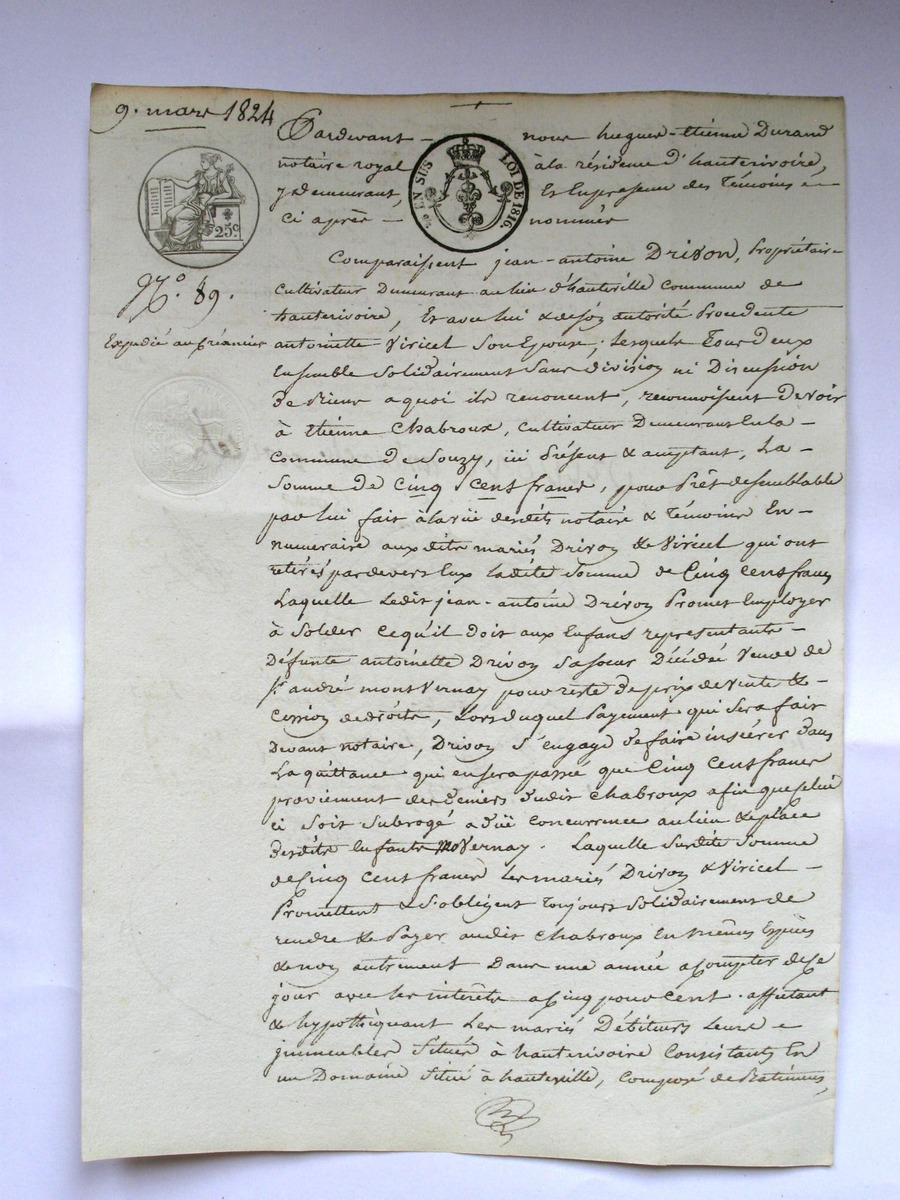 9. mars 1824
Pardevant nous hugues-Etienne Durand
notaire royal à la résidence d'hauterivoire,
y demeurant, Et En presence des Témoins
ci après nommés
EN SUS LOI DE 1816.
25c
N.o 89.
Expédié au créancier
Comparaissent jean-antoine Drivon, Propriétaire
cultivateur Demeurant au lieu d'hauteville commune de
hauterivoire, Et avec lui & de son autorité Procedente
antoinette Viricel Son Epouse, Lesquels Tous deux
Ensemble Solidairement Sans division ni Discussion
de biens a quoi ils renoncent, reconnoissent Devoir
à Etienne Chabroux, Cultivateur Demeurant En la
Commune De Souzy, ici présent & acceptant, La
Somme De cinq cents francs, pour Prêt de semblable
par lui fait à la vüe desdits notaire & Témoins En
numeraire auxdits mariés Drivon & Viricel qui ont
retirés pardevers Eux ladite Somme de Cinq cents francs
Laquelle Ledit jean-antoine Drivon Promet Employer
à Solder ce qu'il doit aux Enfans représentants
Défunte antoinette Drivon sa soeur Décédé Veuve de
andré montVernay pour reste de prix de vente &
cession de droits, Lors duquel Payement qui Sera fait
Devant notaire, Drivon S'engage De faire insérer dans
La quittance qui en sera passé que Cinq Cents francs
proviennent des deniers dudit Chabroux afin que celui
ci Soit Subrogé a düe concurrence au lieu & place
desdits Enfants Vernay. Laquelle Susdite Somme
de Cinq Cents francs Les mariés Drivon & Viricel
Promettent & S'obligent Toujours Solidairement de
rendre & Payer audit Chabroux En mêmes Espèces
& non autrement Dans une année a compter de ce
jour avec les interêts a cinq pour cent. affectant
& hypothéquant Les mariés Débiteurs Leurs
jmmeubles Situés à hauterivoire Consistants En
un Domaine Situé à hauteville, Composé de Batimens,